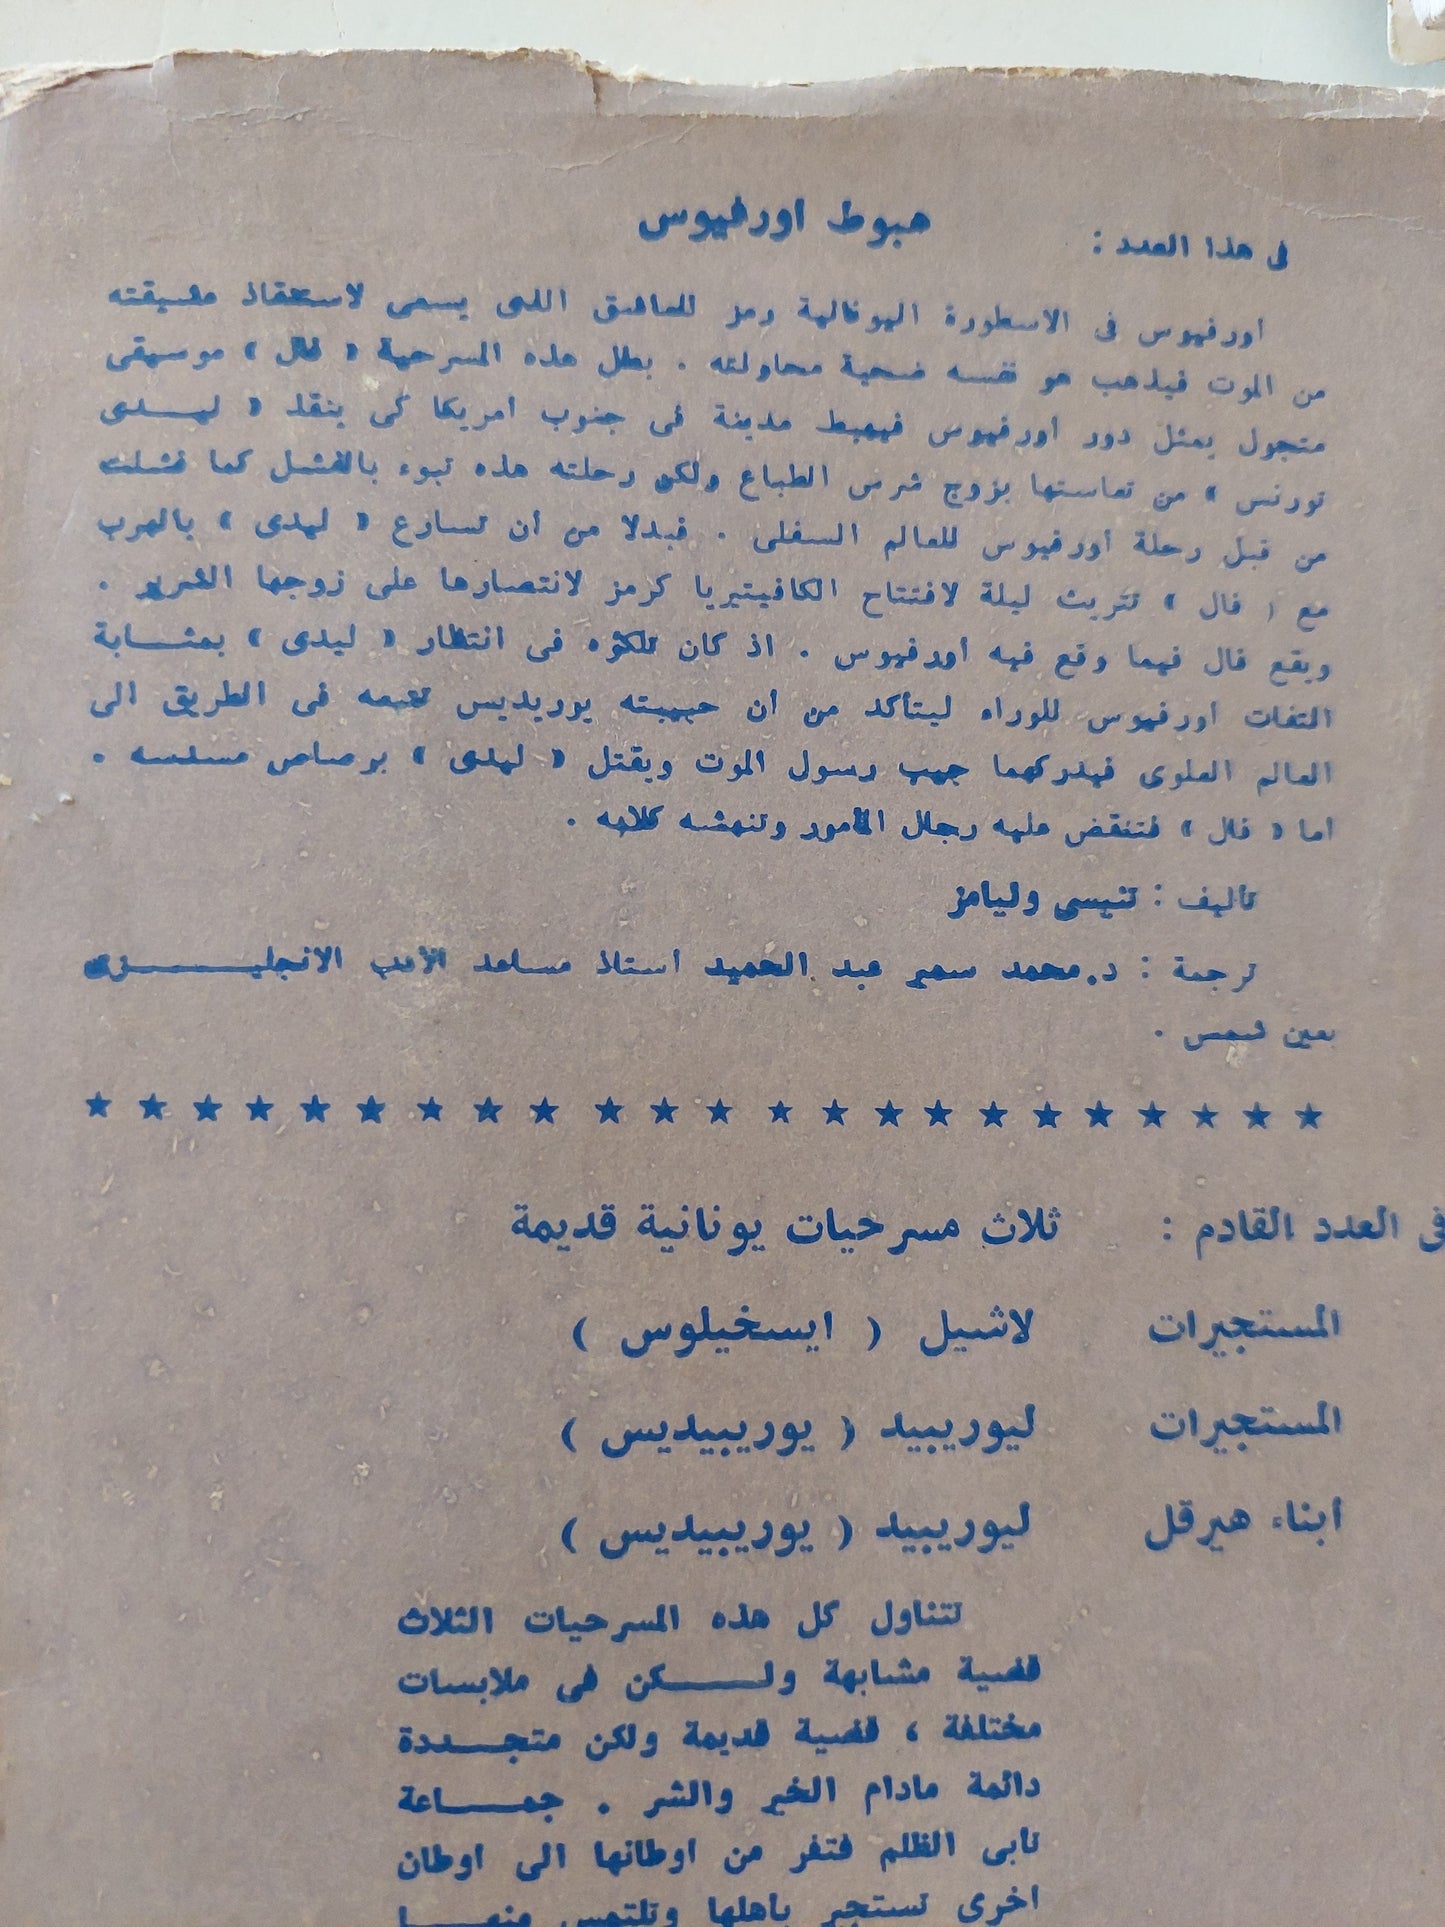 فى هذا العدد : هبوط اورفيوس
اورفيوس فى الاسطورة اليونانية رمز للعاشق الذى يسعى لاستنقاذ عشيقته
من الموت فيذهب هو نفسه ضحية محاولته . بطل هذه المسرحية « فال » موسيقى
متجول يمثل دور اورفيوس فيهبط مدينة فى جنوب امريكا كى ينقذ « ليدى
تورنس » من تعاستها بزوج شرس الطباع ولكن رحلته هذه تبوء بالفشل كما فشلت
من قبل رحلة أورفيوس للعالم السفلى . فبدلا من أن تسارع « ليدى » بالهرب
مع « فال » تتريث ليلة لافتتاح الكافيتيريا كرمز لانتصارها على زوجها الشرير .
ويقع فال فيما وقع فيه أورفيوس . اذ كان تلكؤه فى انتظار « ليدى » بمثابة
التفات اورفيوس للوراء ليتأكد من أن حبيبته يوريديس تتبعه فى الطريق الى
العالم العلوى فيدركهما جيب رسول الموت ويقتل « ليدى » برصاص مسدسه .
اما « فال » فتنقض عليه رجال المأمور وتنهشه كلابه .
تأليف : تنيسى وليامز
ترجمة : د.محمد سمير عبد الحميد استاذ مساعد الأدب الانجليزى
بعين شمس .
فى العدد القادم : ثلاث مسرحيات يونانية قديمة
المستجيرات لاشيل ( ايسخيلوس )
المستجيرات ليوريبيد ( يوريبيديس )
ابناء هيرقل ليوريبيد ( يوريبيديس )
تتناول كل هذه المسرحيات الثلاث
قضية مشابهة ولكن فى ملابسات
مختلفة ، قضية قديمة ولكن متجددة
دائمة مادام الخير والشر . جماعة
تأبى الظلم فتفر من اوطانها الى اوطان
اخرى تستجير باهلها وتلتمس منهـا